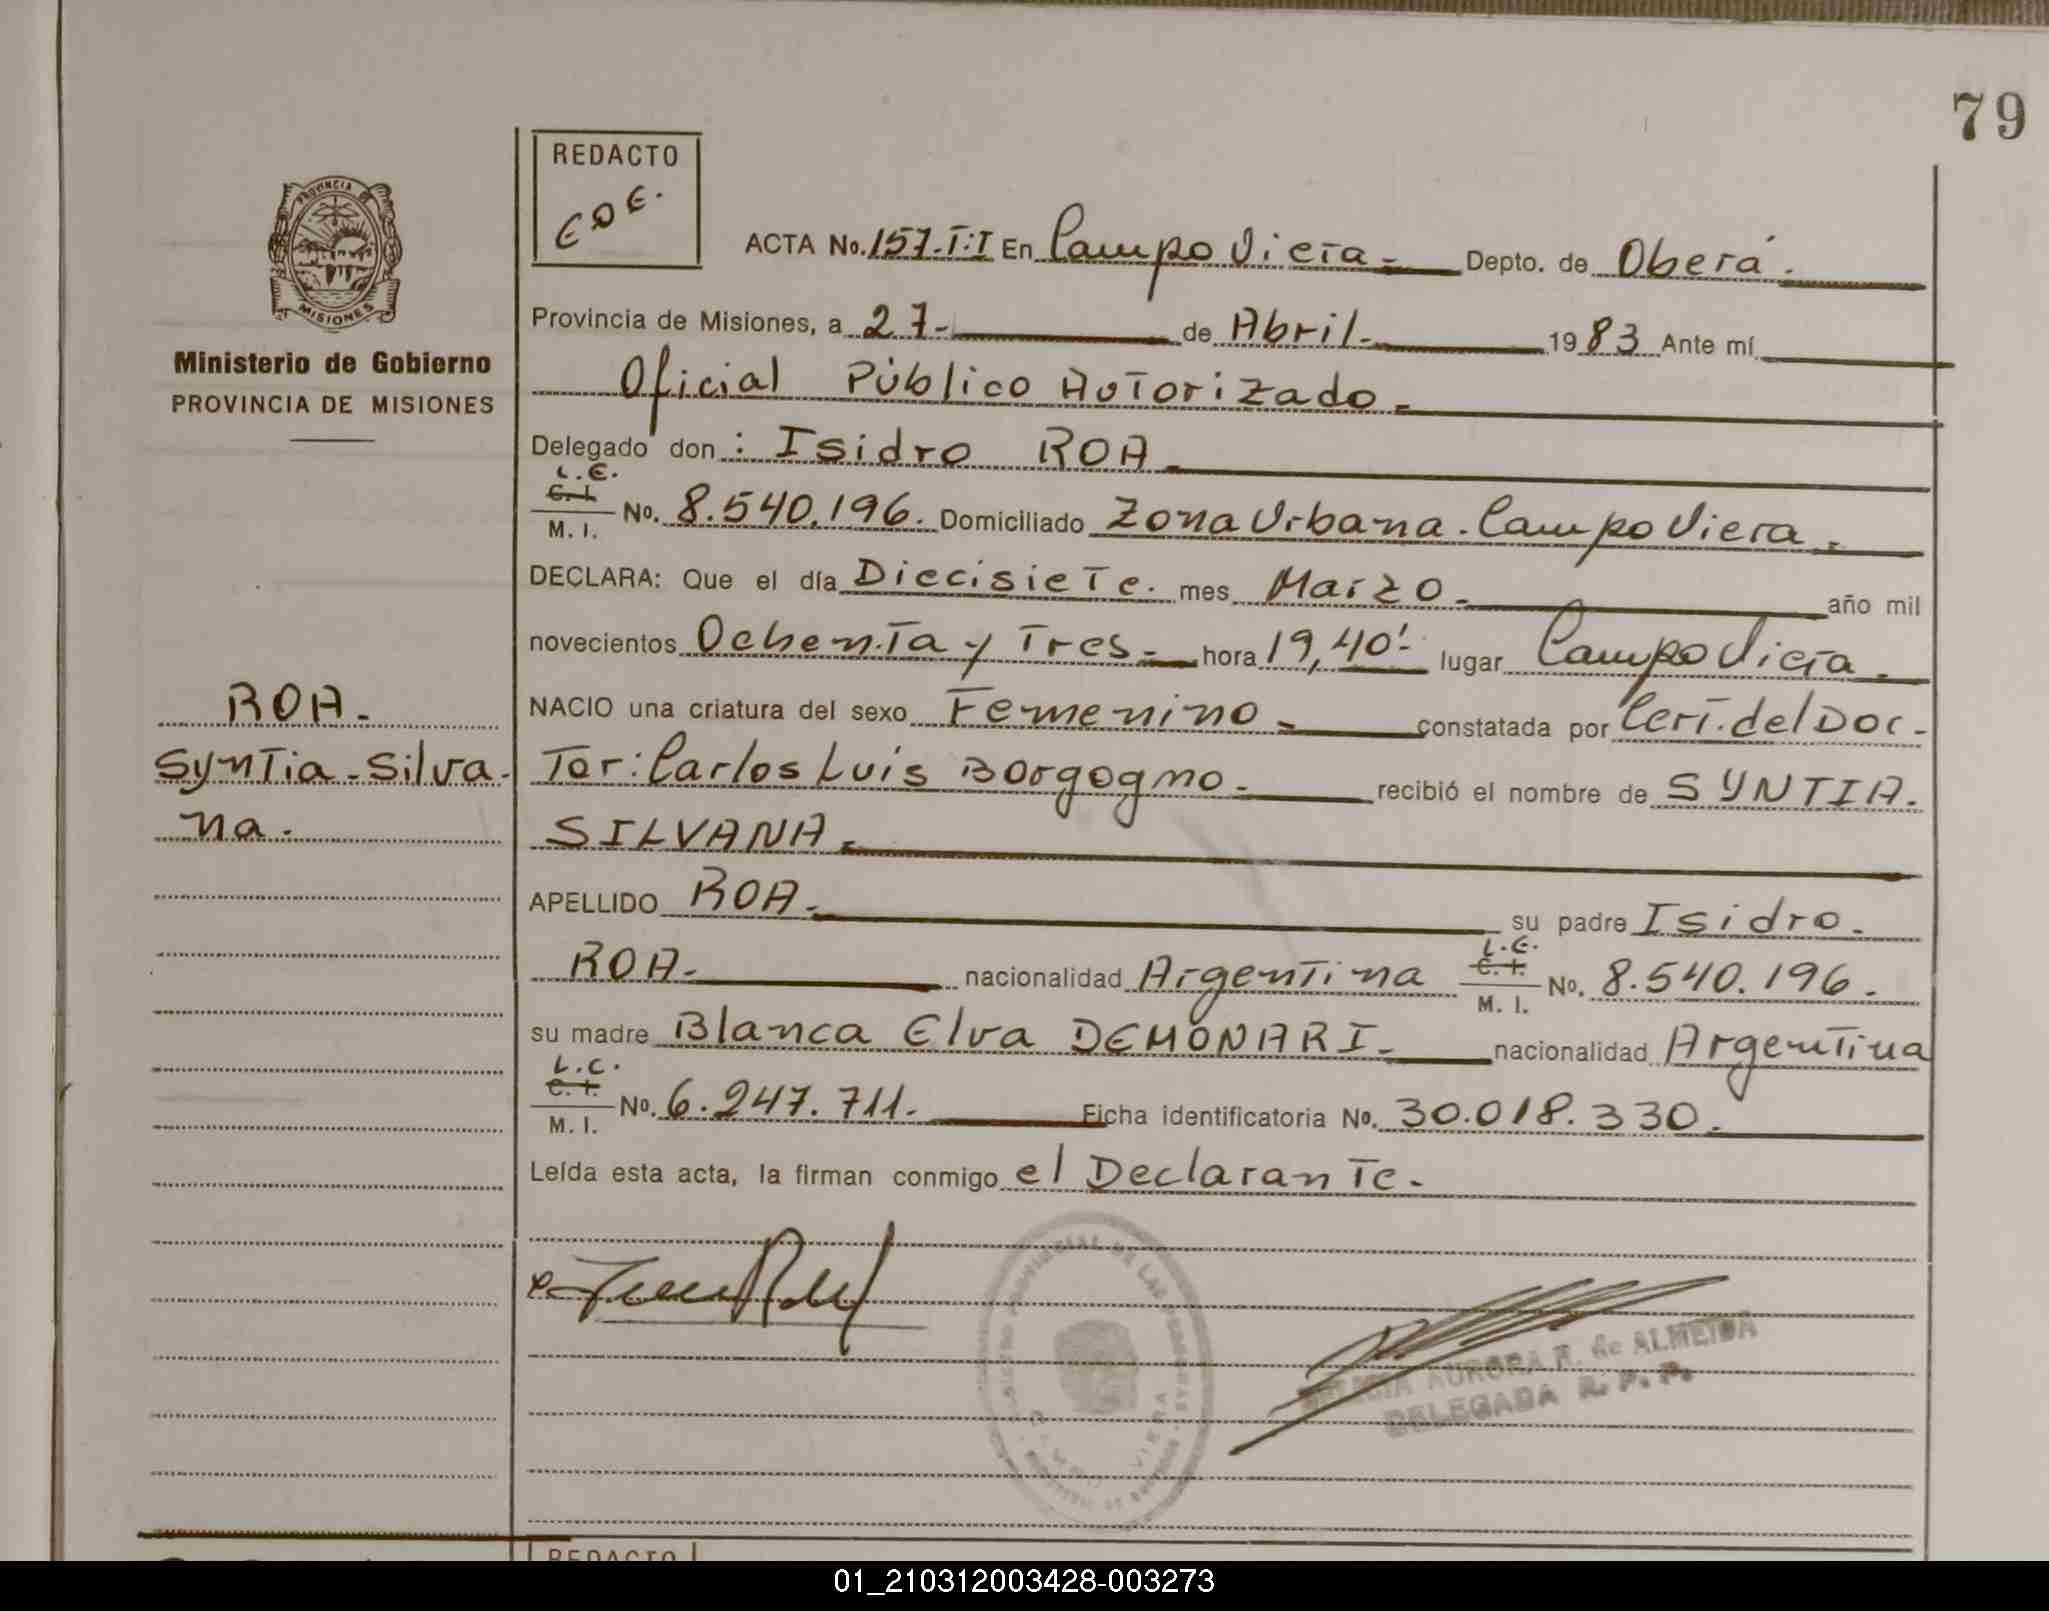 79
PROVINCIA DE
MISIONES
Ministerio de Gobierno
PROVINCIA DE MISIONES
ROA.
Syntia - Silva-
na.
REDACTO
EDE.
ACTA No. 157.T:I En Campo Viera.- Depto. de Oberá.
Provincia de Misiones, a 27.- de Abril.- 1983 Ante mí
Oficial Público Autorizado.-
Delegado don: Isidro ROA
L.E.
C. I.
M. I. No. 8.540.196. Domiciliado Zona Urbana. Campo Viera.
DECLARA: Que el día Diecisiete. mes Marzo. año mil
novecientos Ochenta y Tres.- hora 19,40'.- lugar Campo Viera.
NACIO una criatura del sexo Femenino.- constatada por Cert. del Doc-
tor: Carlos Luis Borgogno.- recibió el nombre de SYNTIA.
SILVANA.
APELLIDO ROA.- su padre Isidro.
ROA.- nacionalidad Argentina L.E.
C. I.
M. I. No. 8.540.196.
su madre Blanca Elva DEMONARI.- nacionalidad Argentina
L.C.
C. I.
M. I. No. 6.247.711. Ficha identificatoria No. 30.018.330.
Leída esta acta, la firman conmigo el Declarante.
AURORA R. de ALMEIDA
DELEGADA R. P. P.
CAMPO VIERA
REDACTO
01_210312003428-003273